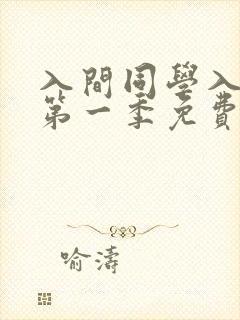 入間同學入
第一季免費
喻濤